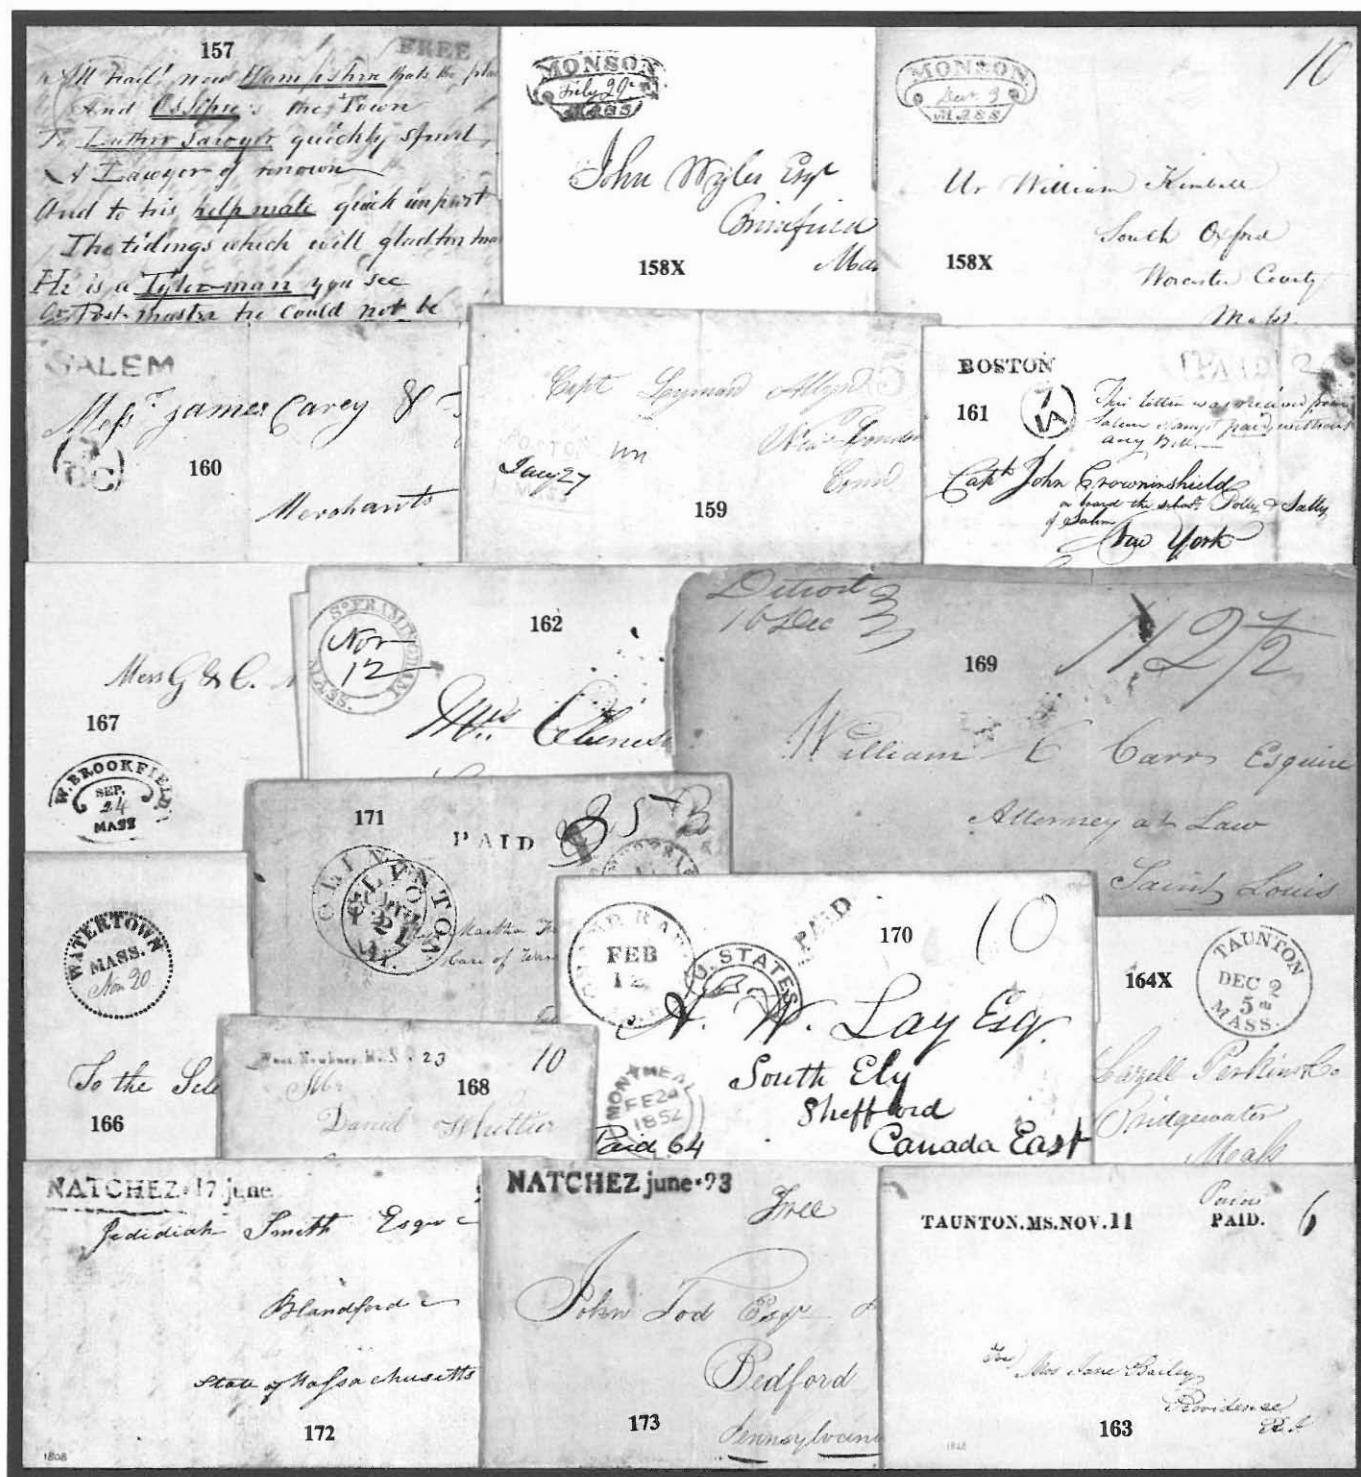 157
FREE
All hail! new Hampshire thats the
And Ossipee's the Town
To Luther Sawyer quickly
A Lawyer of renown
And to his helpmate quick impart
The tidings which will gladden
He is a Tyler-man you see
Or Postmaster he could not be
MONSON
July 29
MASS
John Wyles Esqr
158X
MONSON
Dec. 3
MASS
10
Mr William Kimball
South Oxford
Worcester County
Mass.
158X
SALEM
Messrs James Carey &
DC
160
Merchants
Capt Lyman Allyn
5
BOSTON
Jany 27
New London
Connt
159
BOSTON
PAID
161
7
IA
This letter was received from
Salem stampt paid without
any Bill
Capt. John Crowninshield
on board the schor. Polly & Sally
of Salem
New York
Mess G & C.
167
W. BROOKFIELD
SEP.
24
MASS
162
So. FRAMINGHAM
Nov
12
MASS.
Mrs
Detroit
16 Dec
112 1/2
169
William C Carr Esquire
Attorney at Law
Saint Louis
171
PAID
CLINTON
21
Martha
Care of
WATERTOWN
MASS.
Nov 20
To the
166
West Newbury Ms. 23
10
Mr
168
Daniel Whittier
FEB
12
PAID
170
10
U. STATES
A. W. Lay Esq.
South Ely
Shefford
Canada East
MONTREAL
FE 20
1852
Paid 64
164X
TAUNTON
DEC 2
5 cts
MASS.
Lazell Perkins & Co.
Bridgewater
Mass
NATCHEZ 17 june
Jedidiah Smith Esqr
Blandford
State of Massachusetts
172
1808
NATCHEZ june 23
Free
John Tod Esqr
Bedford
Pennsylvania
173
TAUNTON.MS.NOV.11
PAID.
6
Miss Jane Bailey
Providence
R.I.
163